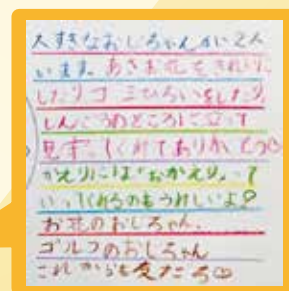 大すきなおじちゃんが2人
います。あさお花をきれいに
したりゴミひろいをしたり
しんごうのところに立って
見守ってくれてありがとう
かえりには"おかえり"って
いってくれるのもうれしいよ
お花のおじちゃん、
ゴルフのおじちゃん
これからも友だち